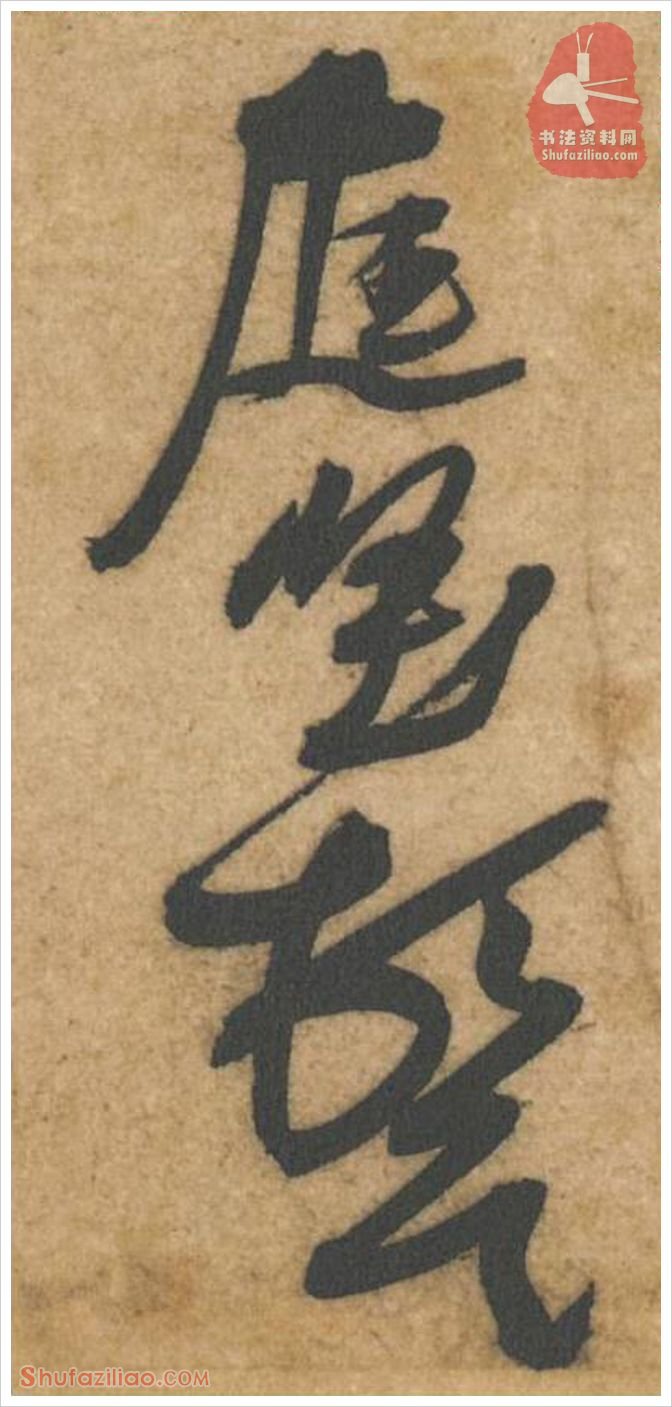 书法资料网
Shufaziliao.com
庭堅
Shufaziliao.com